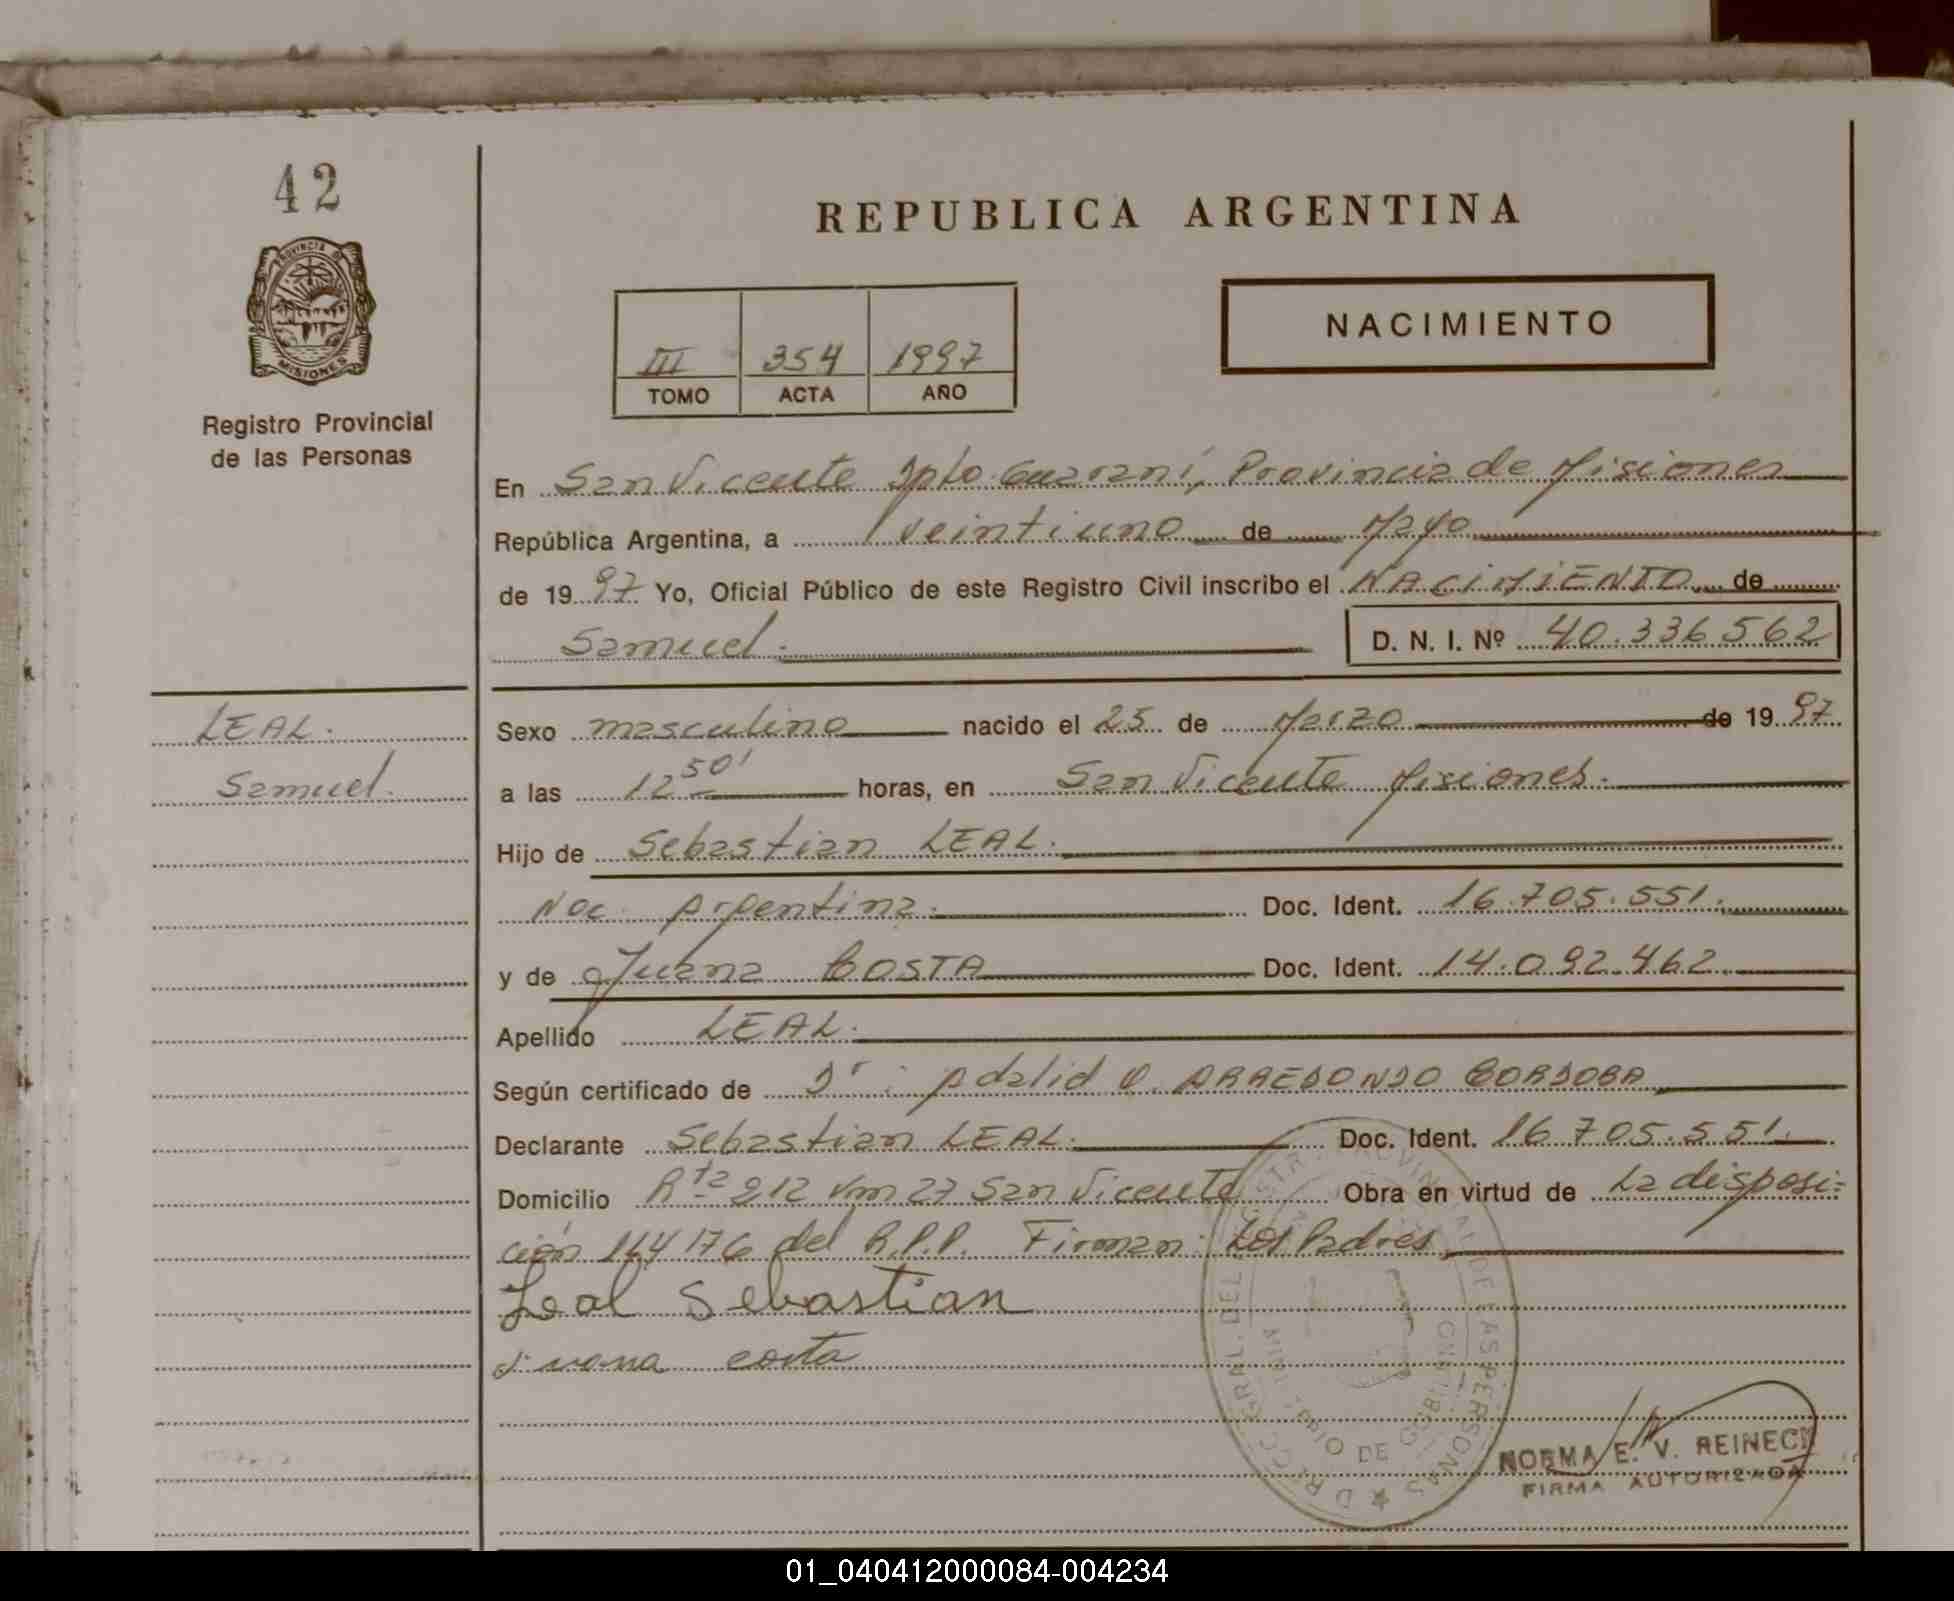 42
REPUBLICA ARGENTINA
PROVINCIA DE
MISIONES
Registro Provincial
de las Personas
NACIMIENTO
III 354 1997
TOMO ACTA AÑO
En San Vicente Dpto. Guaraní, Provincia de Misiones
República Argentina, a veintiuno de Mayo
de 1997 Yo, Oficial Público de este Registro Civil inscribo el NACIMIENTO de
Samuel. D. N. I. Nº 40.336.562
LEAL.
Samuel.
Sexo masculino nacido el 25 de Marzo de 1997
a las 12 50' horas, en San Vicente Misiones.
Hijo de Sebastian LEAL.
Nac. Argentina. Doc. Ident. 16.705.551.
y de Juana COSTA Doc. Ident. 14.092.462
Apellido LEAL.
Según certificado de Dr: Adalid O. ARREDONDO CORDOBA
Declarante Sebastian LEAL. Doc. Ident. 16.705.551.
Domicilio Rta 212 Km 27 San Vicente Obra en virtud de La disposi-
ción 164 176 del R.P.P. Firman: Los Padres
Leal Sebastian
Juana costa
DIRECC. GRAL. DEL REGISTRO PROVINCIAL DE LAS PERSONAS
MINISTERIO DE GOBIERNO
NORMA E. V. REINECK
FIRMA AUTORIZADA
01_040412000084-004234